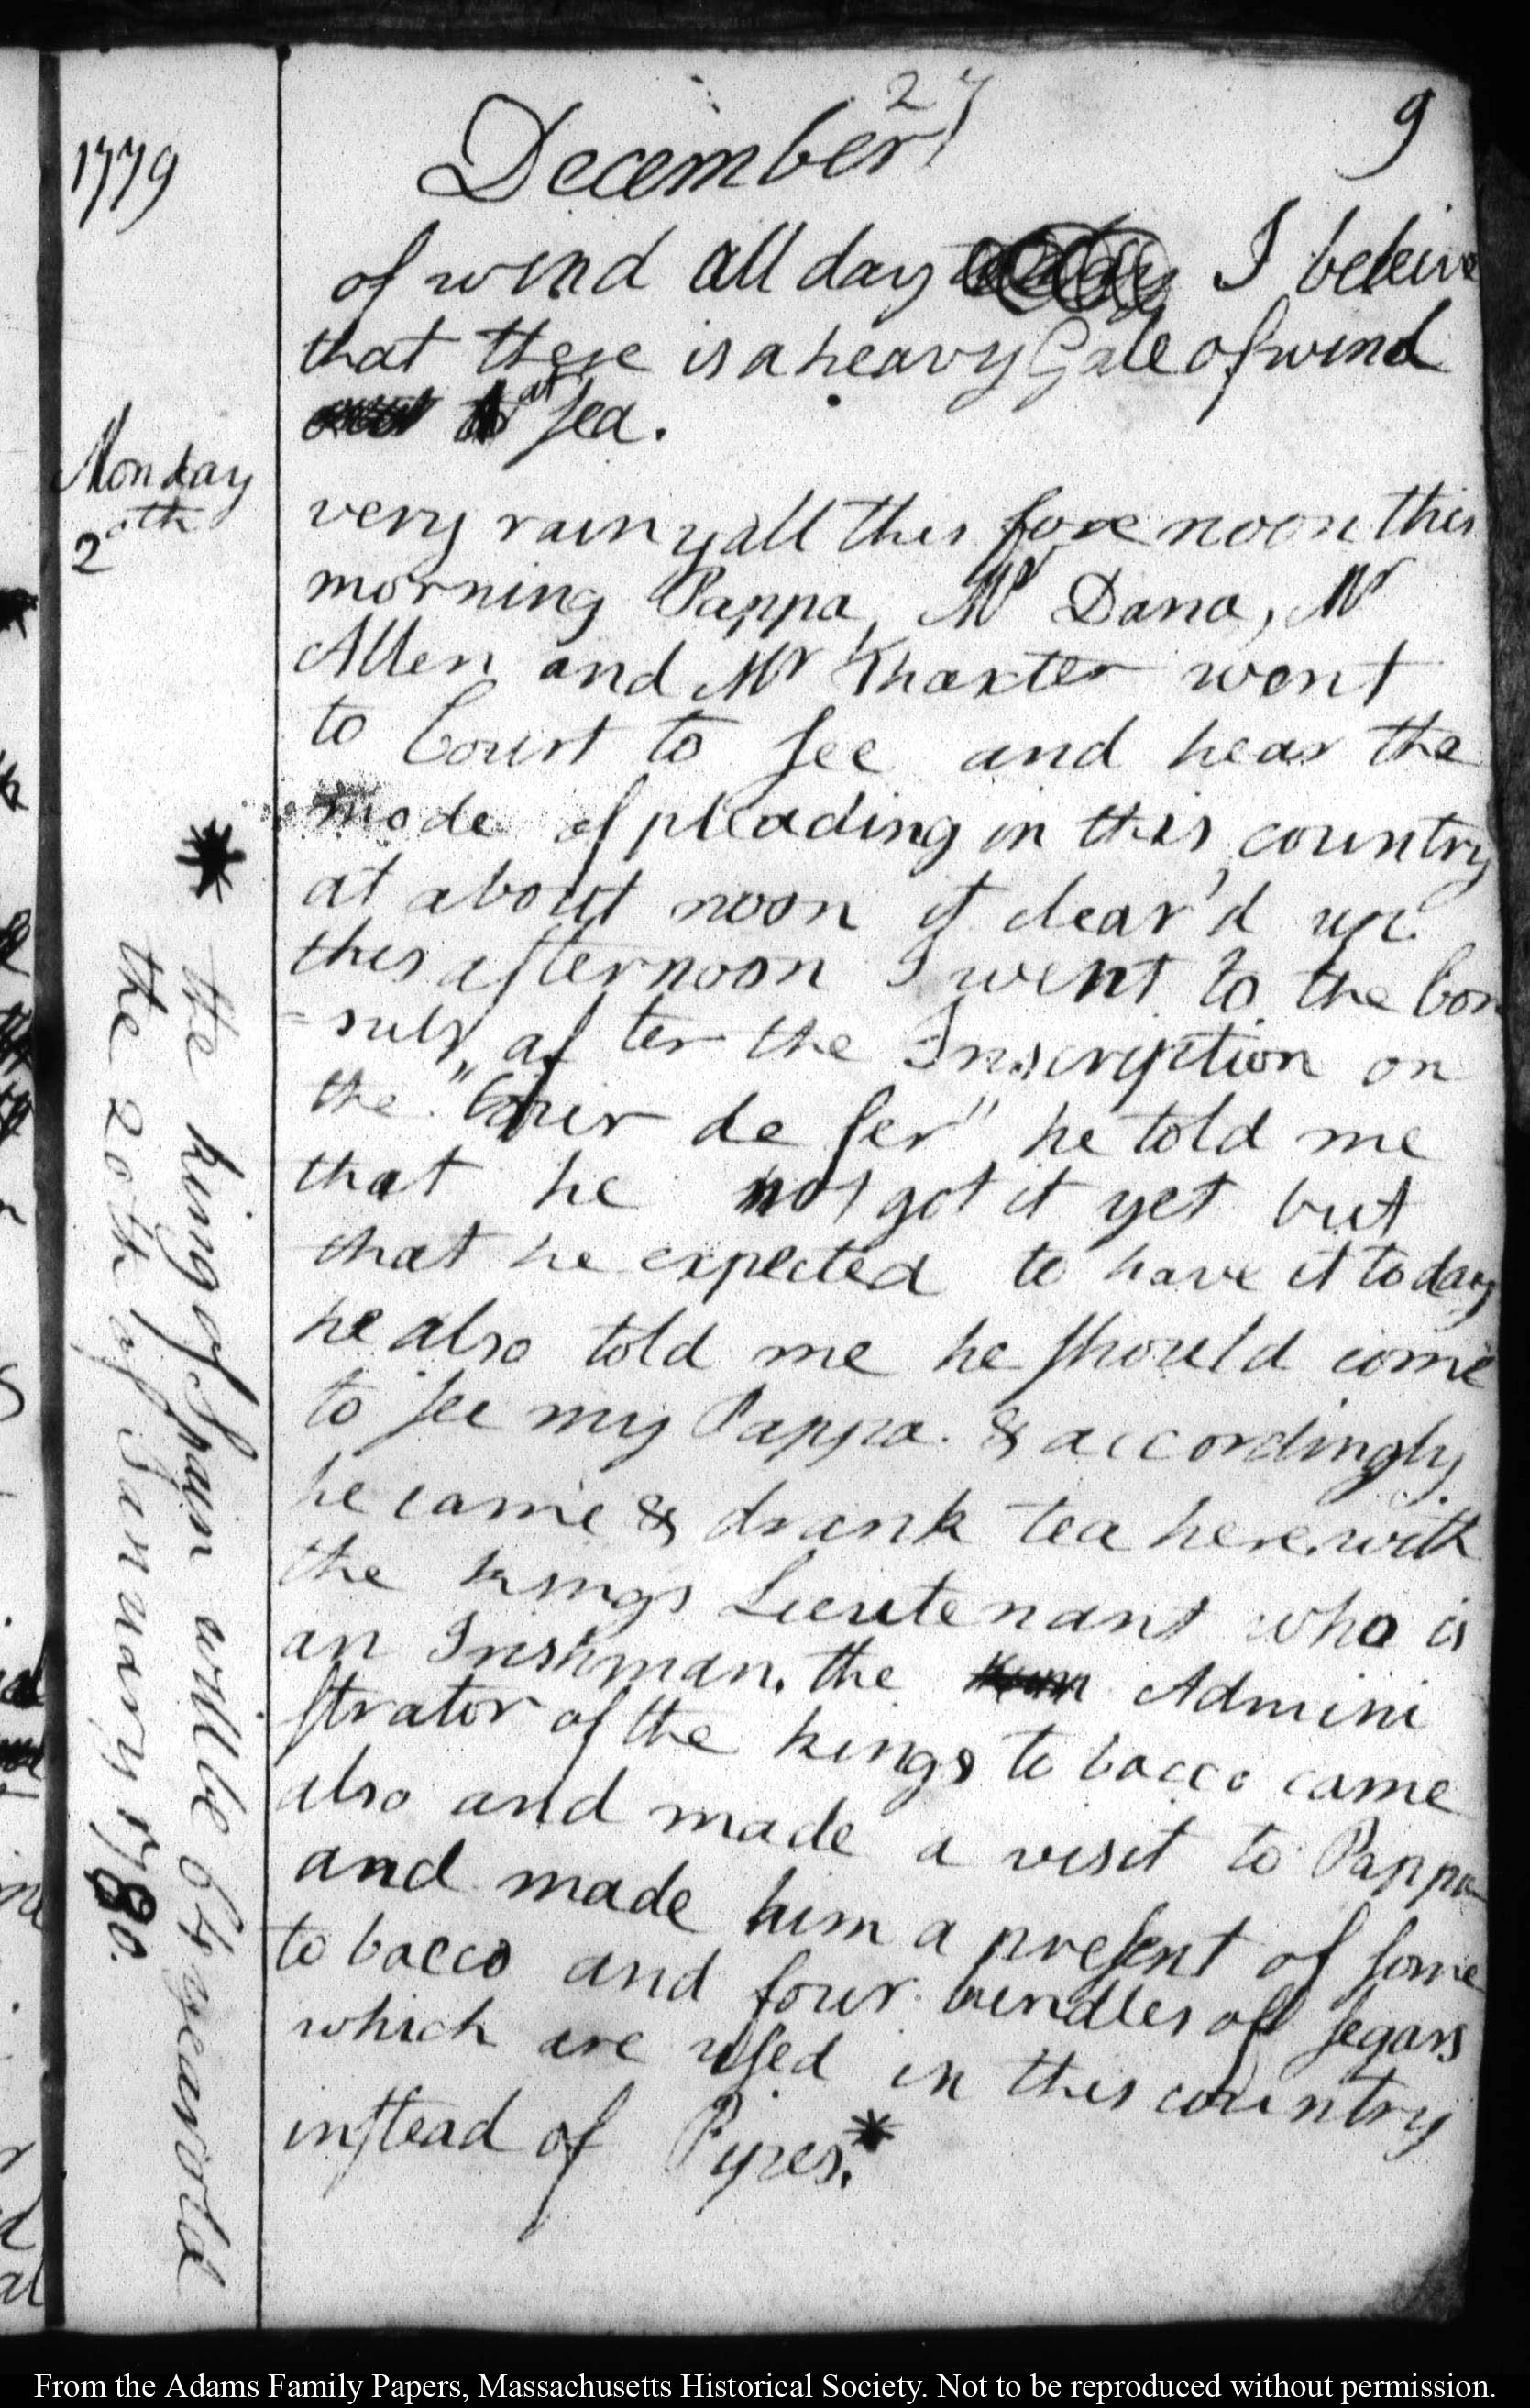 1779
December 27
9
of wind all day I beleive
that there is a heavy Gale of wind
at sea.
Monday
20th
very rainy all this fore noon this
morning Pappa, Mr Dana, Mr
Allen and Mr Thaxter went
to Court to see and hear the
mode of pleading in this country
at about noon it clear'd up.
this afternoon I went to the Con
=suls, after the Inscription on
the "Tour de fer" he told me
that he not got it yet but
that he expected to have it to day
he also told me he should come
to see my Pappa. & accordingly
he came & drank tea here. with
the kings Lieutenant who is
an Irishman. the Admini
strator of the kings tobacco came
also and made a visit to Pappa
and made him a present of some
tobacco and four bundles of segars
which are used in this country
instead of Pipes.*
* the king of Spain will be 64 years old
the 20th of January 1780.
From the Adams Family Papers, Massachusetts Historical Society. Not to be reproduced without permission.